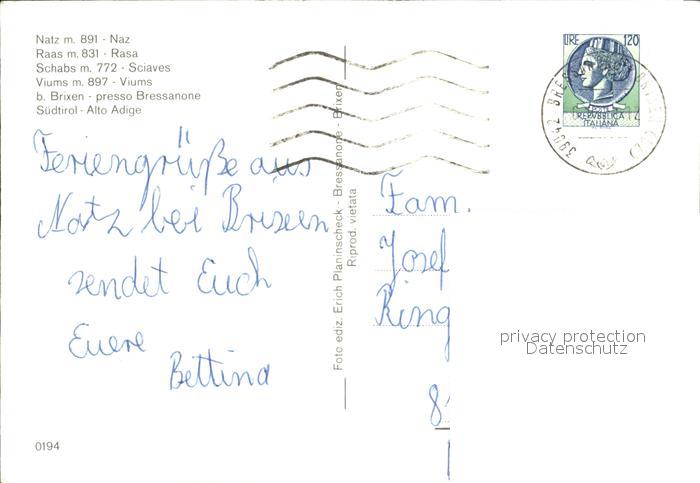 Natz m. 891 - Naz
Raas m. 831 - Rasa
Schabs m. 772 - Sciaves
Viums m. 897 - Viums
b. Brixen - presso Bressanone
Südtirol - Alto Adige
Feriengrüße aus
Natz bei Brixen
sendet Euch
Euere
Bettina
0194
Foto ediz. Erich Planinscheck - Bressanone - Brixen
Riprod. vietata
LIRE 120
REPVBBLICA
ITALIANA
39042
Fam.
Josef
Ring
privacy protection
Datenschutz
8